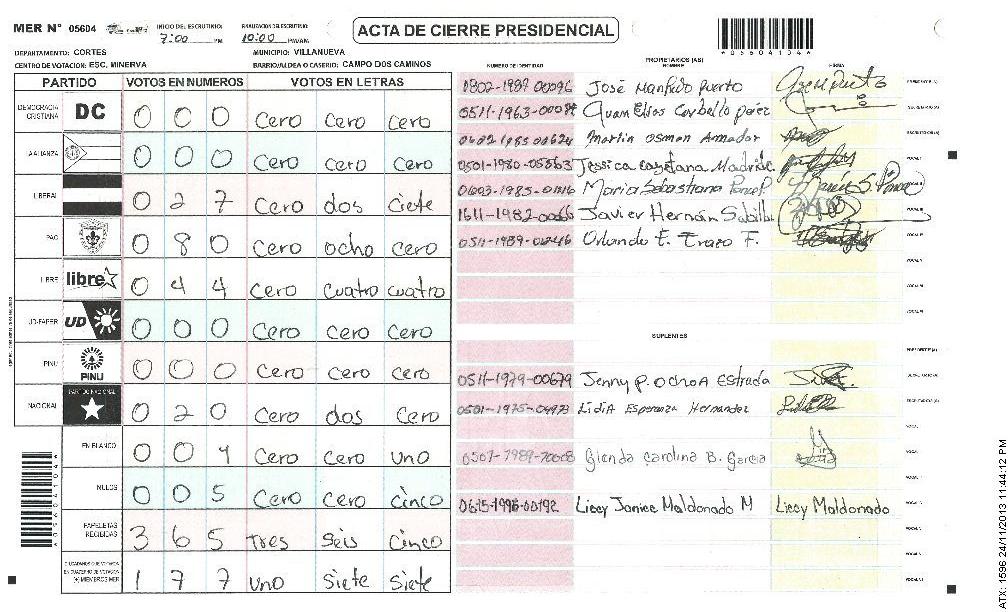 MER N° 05604 INICIO DEL ESCRUTINIO: 7:00 PM FINALIZACION DEL ESCRUTINIO: 10:00 PM/AM. ACTA DE CIERRE PRESIDENCIAL
DEPARTAMENTO: CORTES MUNICIPIO: VILLANUEVA
CENTRO DE VOTACION: ESC. MINERVA BARRIO/ALDEA O CASERIO: CAMPO DOS CAMINOS
PARTIDO VOTOS EN NUMEROS VOTOS EN LETRAS
DEMOCRACIA CRISTIANA DC 0 0 0 Cero Cero Cero
LA ALIANZA 0 0 0 Cero Cero Cero
LIBERAL 0 2 7 Cero dos Ciete
PAC 0 8 0 Cero ocho Cero
LIBRE libre 0 4 4 Cero Cuatro Cuatro
UD-FAPER UD 0 0 0 Cero Cero Cero
PINU PINU 0 0 0 Cero Cero Cero
NACIONAL PARTIDO NACIONAL 0 2 0 Cero dos Cero
EN BLANCO 0 0 1 Cero Cero uno
NULOS 0 0 5 Cero Cero Cinco
PAPELETAS RECIBIDAS 3 6 5 Tres Seis Cinco
CIUDADANOS QUE VOTARON EN CUADERNO DE VOTACION (+) MIEMBROS MER 1 7 7 uno Siete Siete
PROPIETARIOS (AS)
NUMERO DE IDENTIDAD NOMBRE FIRMA
José Manfredo Puerto PRESIDENTE (A)
0511-1963- SECRETARIO (A)
Martin Osman Amador ESCRUTADOR (A)
0501-1980-05863 Jessica Cayetana VOCAL I
Maria Sebastiana
1611-1982-00066 Javier Hernán
0511-1989-00246 Orlando E. Erazo F.
SUPLENTES
PRESIDENTE (A)
0511-1979-00679 Jenny P. Ochoa Estrada SECRETARIO (A)
0501-1975-04973 Lidia Esperanza Hernandez
Glenda Carolina B. Garcia
Maldonado M Maldonado
*05604104*
ATX: 1596 24/11/2013 11:44:12 PM